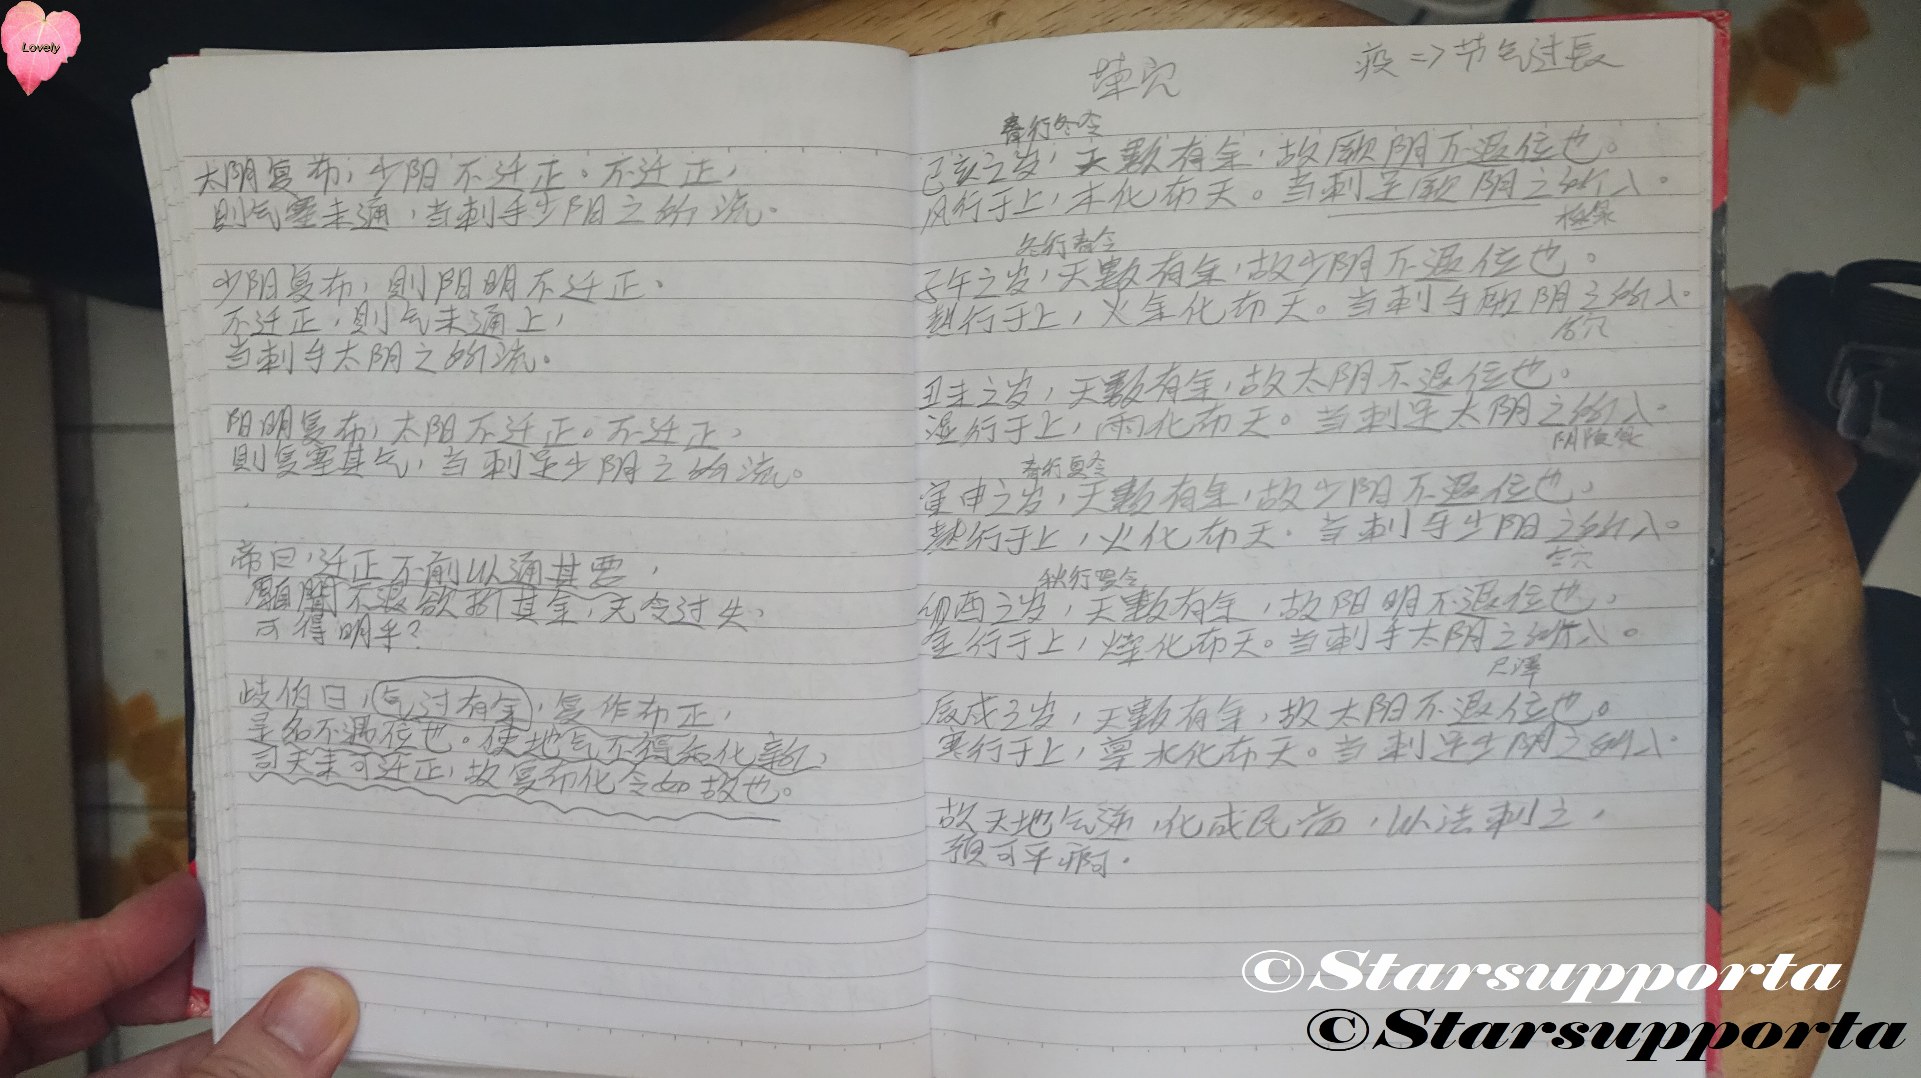 Lovely
太阴复布，少阳不迁正。不迁正，
则气塞未通，当刺手少阳之所流。
少阳复布，则阳明不迁正。
不迁正，则气未通上，
当刺手太阴之所流。
阳明复布，太阳不迁正。不迁正，
则复塞其气，当刺足少阴之所流。
帝曰，迁正不前以通其要，
願聞不退欲折其余，无令过失，
可得明乎？
歧伯曰，气过有余，复作布正，
是名不过位也。使地气不得后化新，
司天未可迁正，故复布化令如故也。
疫 => 节气过長
荥穴
春行冬令
巳亥之岁，天數有余，故厥阴不退位也。
风行于上，木化布天。当刺足厥阴之所入。
冬行春令
子午之岁，天數有余，故少阴不退位也。
熱行于上，火余化布天。当刺手厥阴之所入。
合穴
丑未之岁，天數有余，故太阴不退位也。
湿行于上，雨化布天。当刺足太阴之所入。
阴陵泉
春行夏令
寅申之岁，天數有余，故少阳不退位也。
熱行于上，火化布天。当刺手少阳之所入。
合穴
秋行夏令
卯酉之岁，天數有余，故阳明不退位也。
金行于上，燥化布天。当刺手太阴之所入。
尺泽
辰戌之岁，天數有余，故太阳不退位也。
寒行于上，凛水化布天。当刺足少阴之所入。
故天地气逆，化成民病，以法刺之，
预可平痾。
©Starsupporta
©Starsupporta